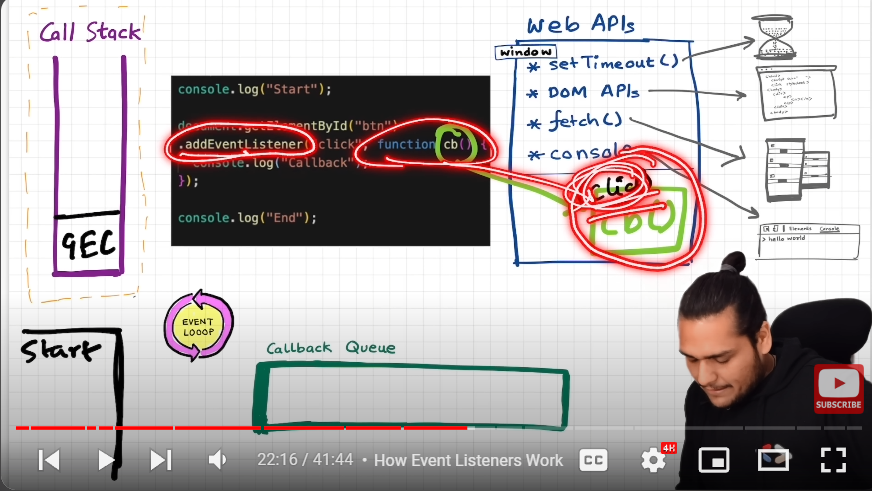 Call Stack
GEC
console.log("Start");
document.getElementById("btn")
.addEventListener( click", function cb() {
console.log("Callback");
});
console.log("End");
Web APIs
window
* setTimeout()
* DOM APIs
* fetch()
* console
click
cb()
Elements Console
> hello world
Start
EVENT
LOOOP
Callback Queue
SUBSCRIBE
22:16 / 41:44 • How Event Listeners Work
CC
4K